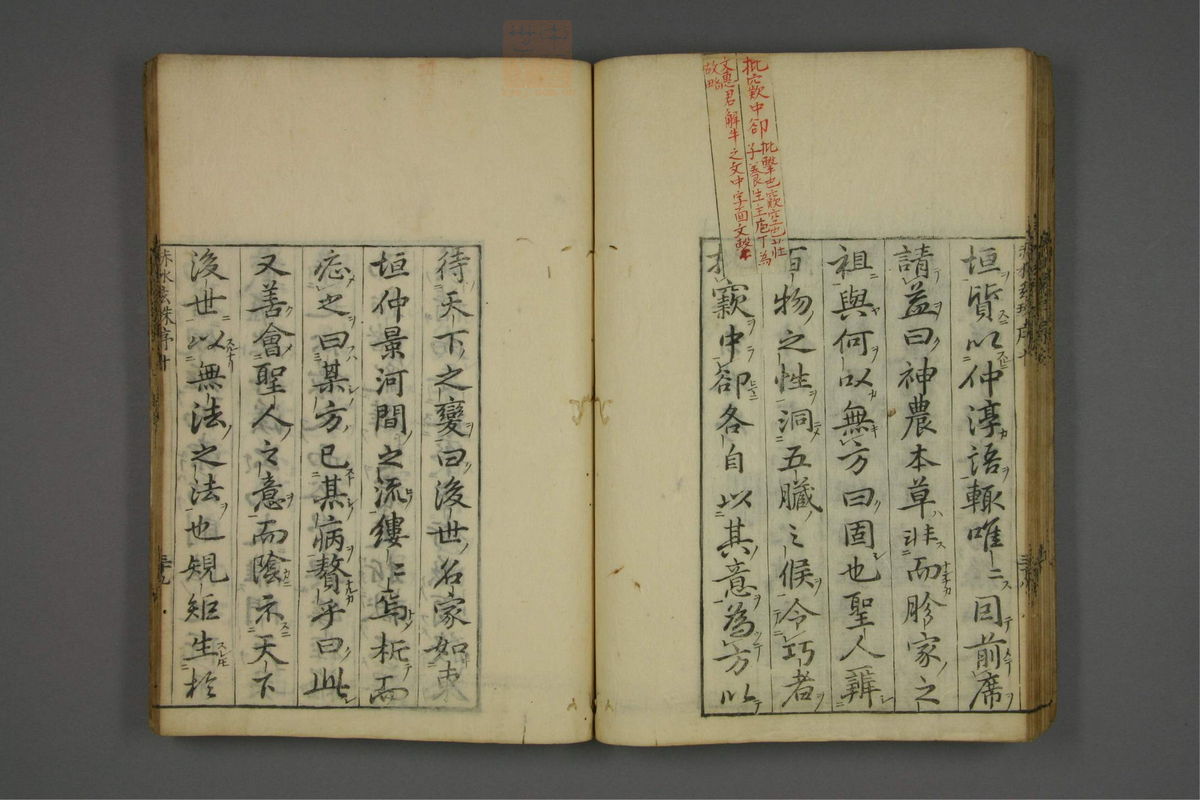 批窾中卻 批擊也窾空也莊
子養生主庖丁為
文惠君解牛之文中字面文繁
故略
垣質以仲淳語輙唯ニ囙前席
請益曰神農本草非而胗家之
祖與何以無方曰固也聖人辨
百物之性洞五臓之候令巧者
批窾中卻各自以其意為方以
待天下之變曰後世名家如東
垣仲景河間之流縷ニ焉析而
志之曰某方已某病贅乎曰此
又善會聖人之意而陰示天下
後世以無法之法也規矩生於
赤水玄珠序